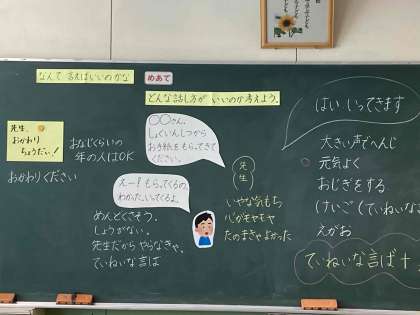 なんて 言えばいいのかな
めあて
どんな話し方が いいのか考えよう。
先生、
おかわり
ちょうだい!
おなじくらいの
年の人はOK
おかわりください
〇〇さん、
しょくいんしつから
お手紙をもらってきて
ください。
えー!もらってくるの。
わかった、いってくるよ。
めんどくさそう。
しょうがない。
先生だから やらなきゃ。
ていねいな言ば
先生
いやな気もち
心がモヤモヤ
たのまなきゃよかった
はい、いってきます
大きい声でへんじ
元気よく
おじぎをする
けいご(ていねいな
えがお
ていねいな言ば+